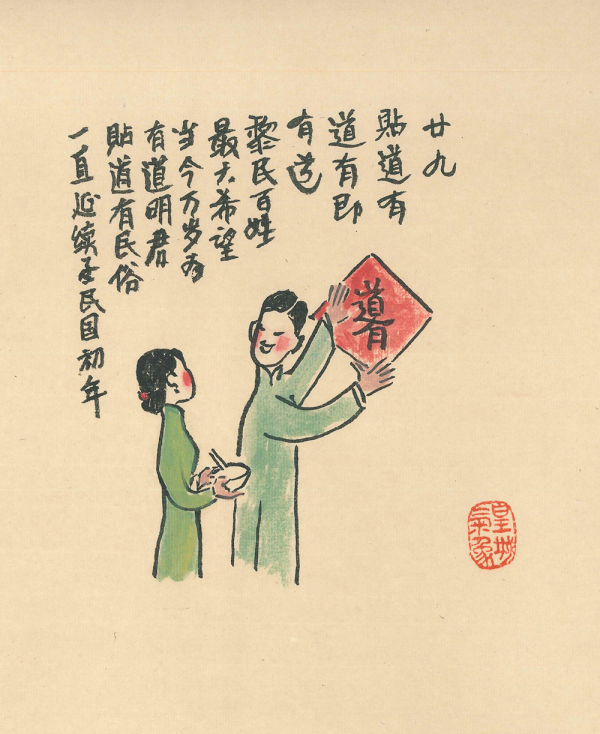 廿九
貼道有
道有即
有道
黎民百姓
最大希望
当今万岁为
有道明君
貼道有民俗
一直延续至民国初年
道有